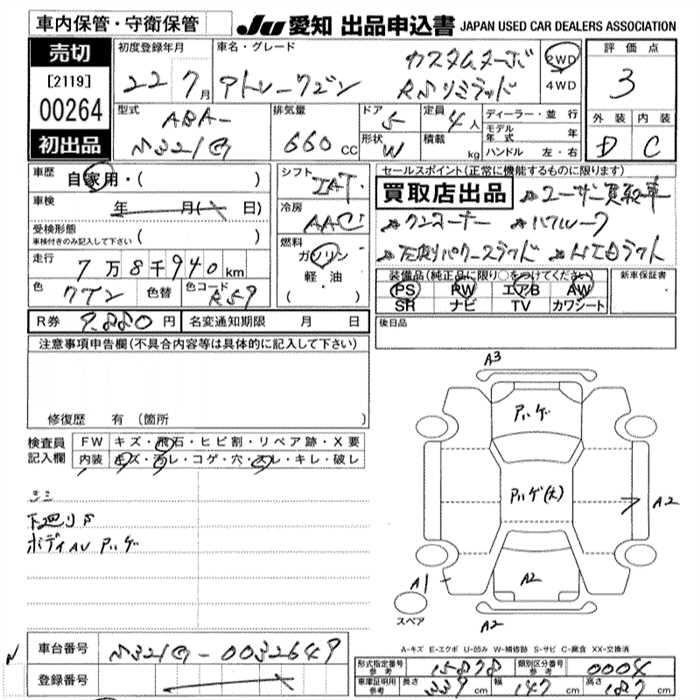 車内保管・守衛保管
JU 愛知 出品申込書 JAPAN USED CAR DEALERS ASSOCIATION
売切
[2119]
00264
初出品
初度登録年月
22 7月
車名・グレード
カスタムターボ
アトレーワゴン RSリミテッド
2WD
4WD
評価点
3
外装 内装
D C
型式
ABA-
S321G
排気量
660 CC
ドア 5
形状 W
定員 4人
積載 kg
ディーラー・並行
モデル年式 年
ハンドル 左・右
車歴 自家用・( )
車検 年 月( 日)
受検形態
車検付きのみ記入して下さい ( )
走行 7万8千940km
色 ワイン 色替 色コード R59
シフト
IAT
冷房
AAC
燃料
ガソリン
・
軽油
・
( )
セールスポイント(正常に機能するものに限ります)
買取店出品 ユーザー買取車
コーナー
左側パワースライド HIDライト
装備品(純正品に限り○をつけてください)
PS PW エアB AW
SR ナビ TV カワシート
新車保証書
後日品
R券 9,880円 名変通知期限 月 日
注意事項申告欄(不具合内容等は具体的に記入して下さい)
修復歴 有(箇所 )
検査員
記入欄
FW キズ・飛石・ヒビ割・リペア跡・X要
内装 キズ・汚レ・コゲ・穴・スレ・キレ・破レ
下廻りS
ボディAU ハゲ
A3
ハゲ
ハゲ(大)
A2
A1
A2
A2
スペア
A-キズ E-エクボ U-凹み W-補修跡 S-サビ C-腐食 XX-交換済
車台番号 S321G-0032649
登録番号
形式指定番号 参考 15878 類別区分番号 参考 0004
車庫証明用 参考 長さ 339cm 幅 147cm 高さ 187cm